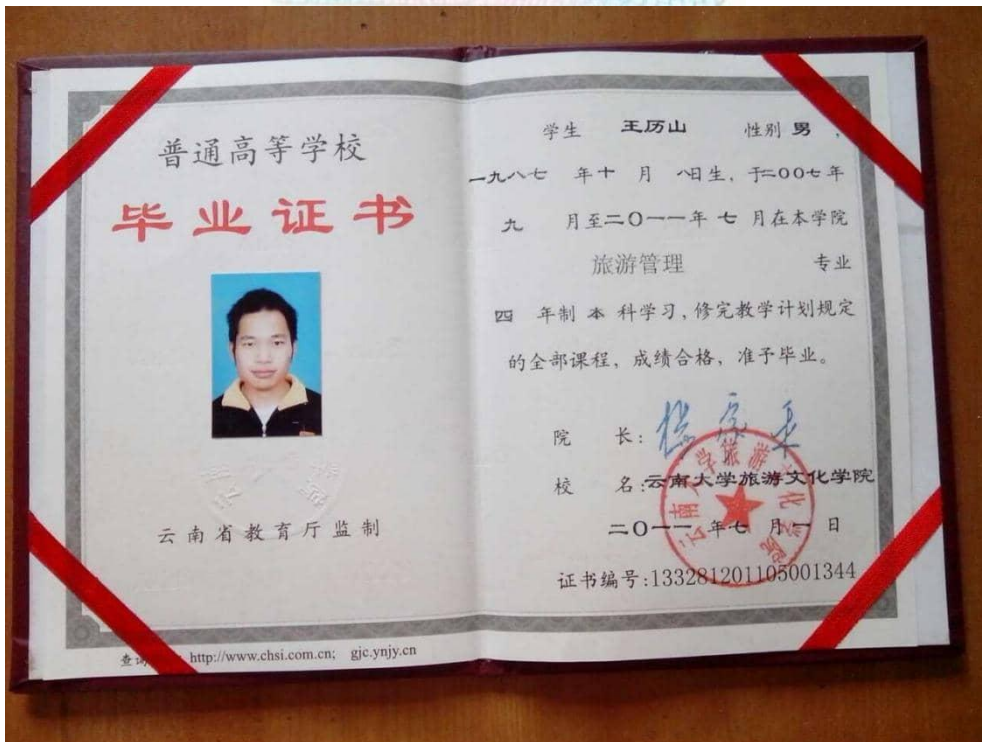 普通高等学校
毕业证书
云南省教育厅监制
http://www.chsi.com.cn; gjc.ynjy.cn
学生 王历山 性别 男,
一九八七 年十 月 八日生, 于二00七年
九 月至二0一一年 七 月在本学院
旅游管理 专业
四 年制 本 科学习, 修完教学计划规定
的全部课程, 成绩合格, 准予毕业。
院 长:
校 名:云南大学旅游文化学院
二0一一 年七 月一 日
证书编号:133281201105001344